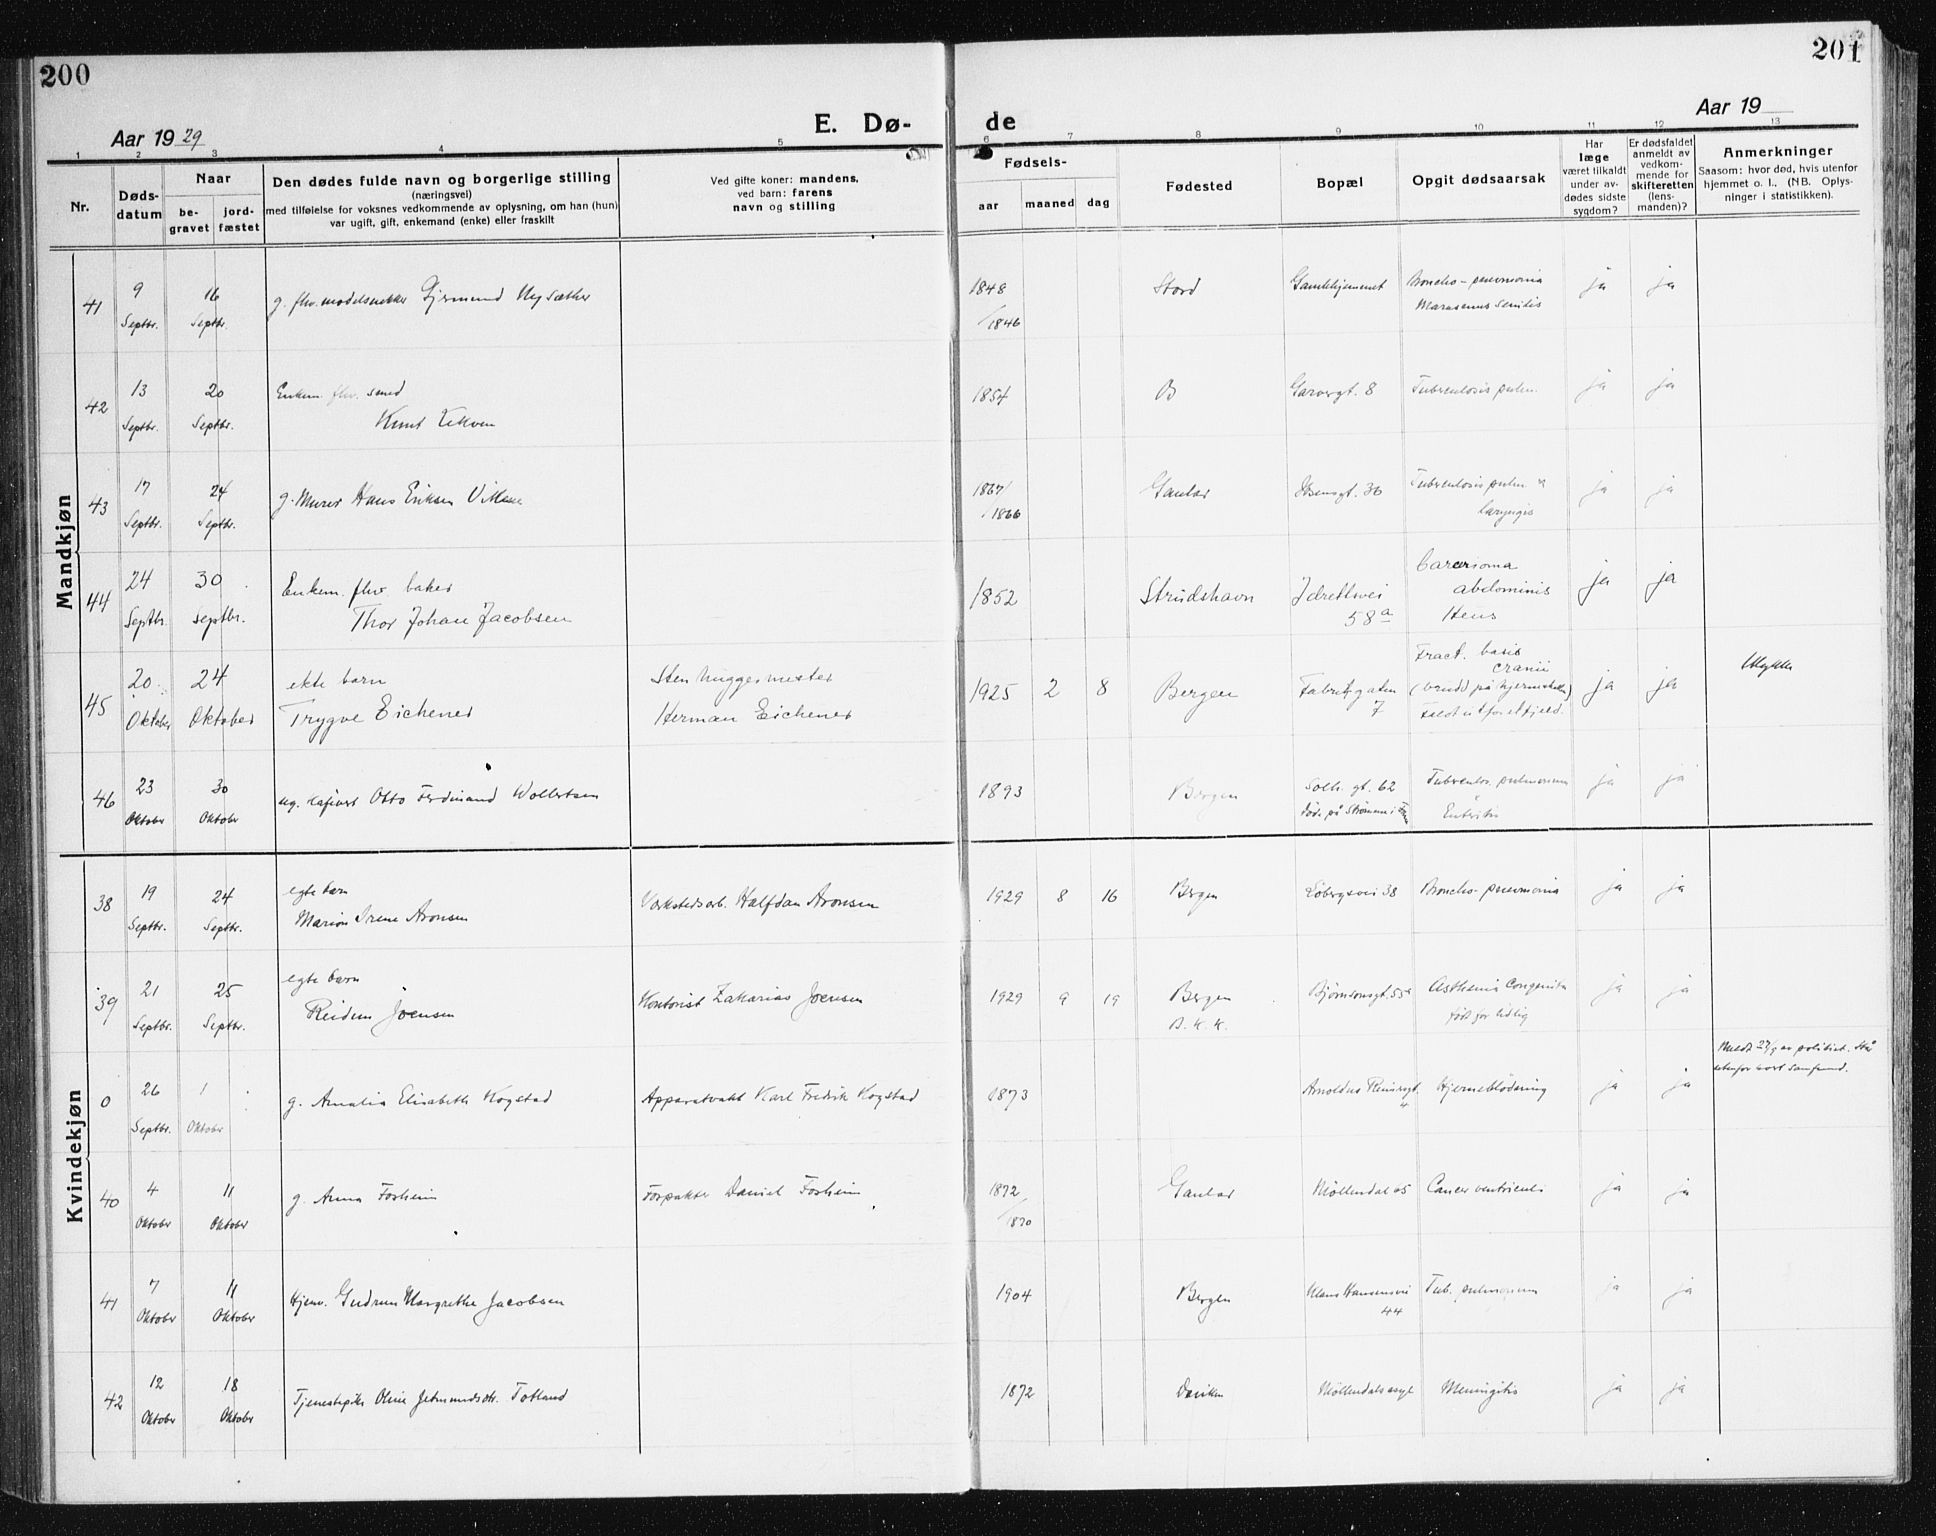 200
201
E. Dø- de
Aar 19 29
Aar 19
1 2 3 4 5 6 7 8 9 10 11 12 13
Nr.
Døds-
datum
Naar
be-
gravet
jord-
fæstet
Den dødes fulde navn og borgerlige stilling
(næringsvei)
med tilføielse for voksnes vedkommende av oplysning, om han (hun)
var ugift, gift, enkemand (enke) eller fraskilt
Ved gifte koner: mandens,
ved barn: farens
navn og stilling
Fødsels-
aar maaned dag
Fødested
Bopæl
Opgit dødsaarsak
Har
læge
været tilkaldt
under av-
dødes sidste
sygdom?
Er dødsfaldet
anmeldt av
vedkom-
mende for
skifteretten
(lens-
manden)?
Anmerkninger
Saasom: hvor død, hvis utenfor
hjemmet o. l., (NB. Oplys-
ninger i statistikken).
Mandkjøn
41 9 Septbr. 16 Septbr. g. fhv. modelsnekker Gjermund Nysæther 1848 /1846 Stord Gamlehjemmet Broncho-pneumonia Marasmus senilis ja ja
42 13 Septbr. 20 Septbr. Enkem. fhv. smed
Knut Lekven 1854 B Garvergt. 8 Tuberculosis pulm. ja ja
43 17 Septbr. 24 Septbr. g. Murer Hans Eriksen 1867 /1866 Gaular Ibsensgt. 36 Tuberculosis pulm. & laryngis ja ja
44 24 Septbr. 30 Septbr. Enkem. fhv. baker
Thor Johan Jacobsen 1852 Strudshavn Idrettsvei 58 a abdominis ja ja
45 20 Oktober 24 Oktober ekte barn
Trygve Eichener Stenhuggermester
Herman Eichener 1925 2 8 Bergen Fabrikgaten 7 Fract. basis
cranii
(brudd på hjerneskallen)
Faldt utfor et fjeld. ja ja Ulykke
46 23 Oktober 30 Oktober ug. Otto Ferdinand Wollertsen 1893 Bergen Solh. gt. 62
død på Tubercul. pulmonum
& Enteritis ja ja
Kvindekjøn
38 19 Septbr. 24 Septbr. egte barn
Marion Irene Aronsen Verkstedsarb. Halfdan Aronsen 1929 8 16 Bergen Løbergsvei 38 Broncho-pneumonia ja ja
39 21 Septbr. 25 Septbr. egte barn
Reidun Joensen Kontorist Zakarias Joensen 1929 9 19 Bergen
B. K. K. Bjørnsonsgt. 55a Asthenia congenita
født for tidlig ja ja
0 26 Septbr. 1 Oktober g. Amalia Elisabeth Kogstad Apparatvakt Karl Fredrik Kogstad 1873 Arnoldus Reimersgt. 4 Hjerneblödning ja ja Meldt 27/9 av politiet. Står
utenfor vort samfund.
40 4 Oktober 11 Oktober g. Anna Forpakter Daniel 1872 /1870 Gaular Möllendal 65 Cancer ventriculi ja ja
41 7 Oktober 11 Oktober Hjemv. Gudrun Margrethe Jacobsen 1904 Bergen Klaus Hansensvei 44 Tub. pulmonum ja ja
42 12 Oktober 18 Oktober Tjenestepike Oline Totland 1872 Daviken Möllendalsasyl Meningitis ja ja